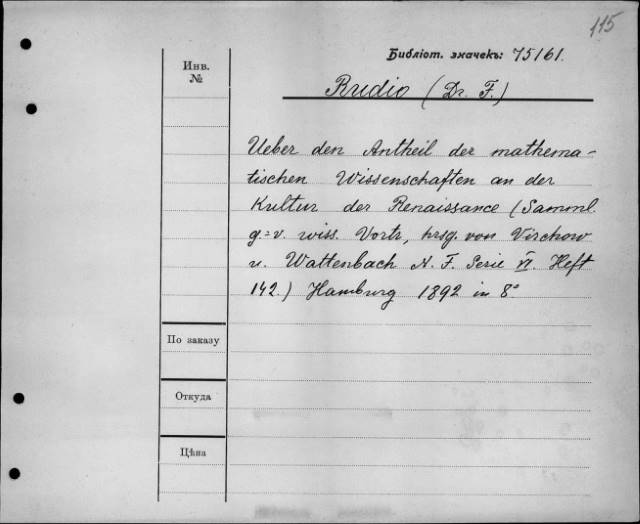 115
Библіот. значекъ: 75161.
Инв.
№
Rudio (Dr. F.)
Ueber den Antheil der mathema-
tischen Wissenschaften an der
Kultur der Renaissance (Samml.
g.-v. wiss. Vortr., hrsg. von Virchow
u. Wattenbach N. F. Serie VI. Heft
142.) Hamburg 1892 in 8°
По заказу
Откуда
Цѣна